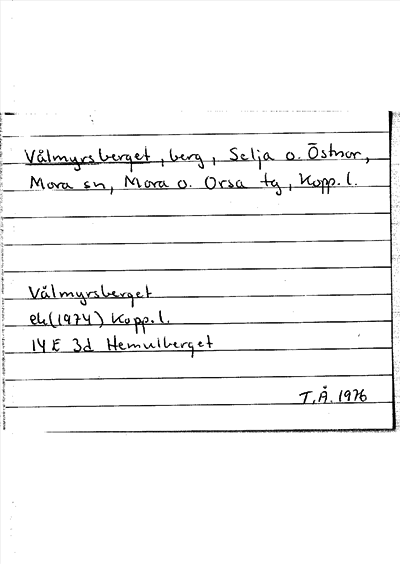 Vålmyrsberget, berg, Selja o. Östnor,
Mora sn, Mora o. Orsa tg, Kopp. l.
Vålmyrsberget
ek (1974) Kopp. l.
14E 3d Hemulberget
T.Å. 1976